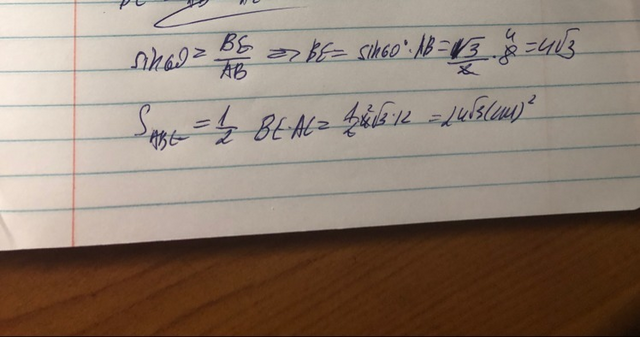 sin60 = BE/AB => BE = sin60° · AB = √3/2 · 8 4 = 4√3
S ABC = 1/2 BE · AC = 1/2 4 2 √3 · 12 = 24√3 (см)²